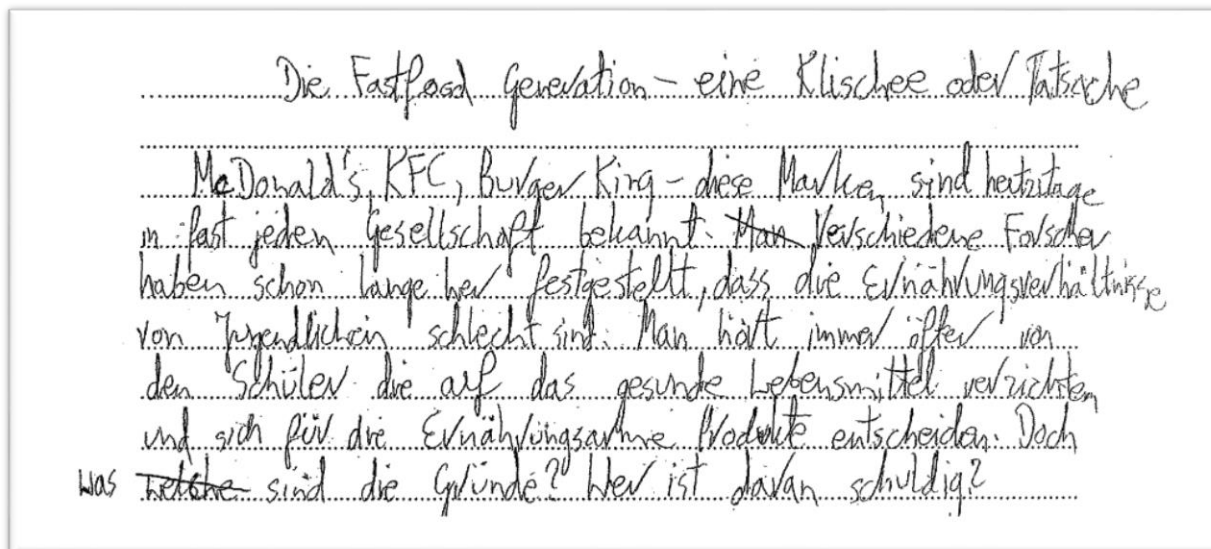 Die Fastfood Generation – eine Klischee oder Tatsache
McDonald's, KFC, Burger King – diese Marken, sind heutzutage
in fast jeden Gesellschaft bekannt. Man Verschiedene Forscher
haben schon lange her festgestellt, dass die Ernährungsverhältnisse
von Jugendlichen schlecht sind. Man hört immer öfter von
den Schüler die auf das gesunde Lebensmittel verzichten
und sich für die Ernährungsarme Produkte entscheiden. Doch
was welche sind die Gründe? Wer ist daran schuldig?